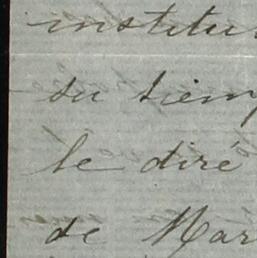 institu
su tiem
le diré
de Mar